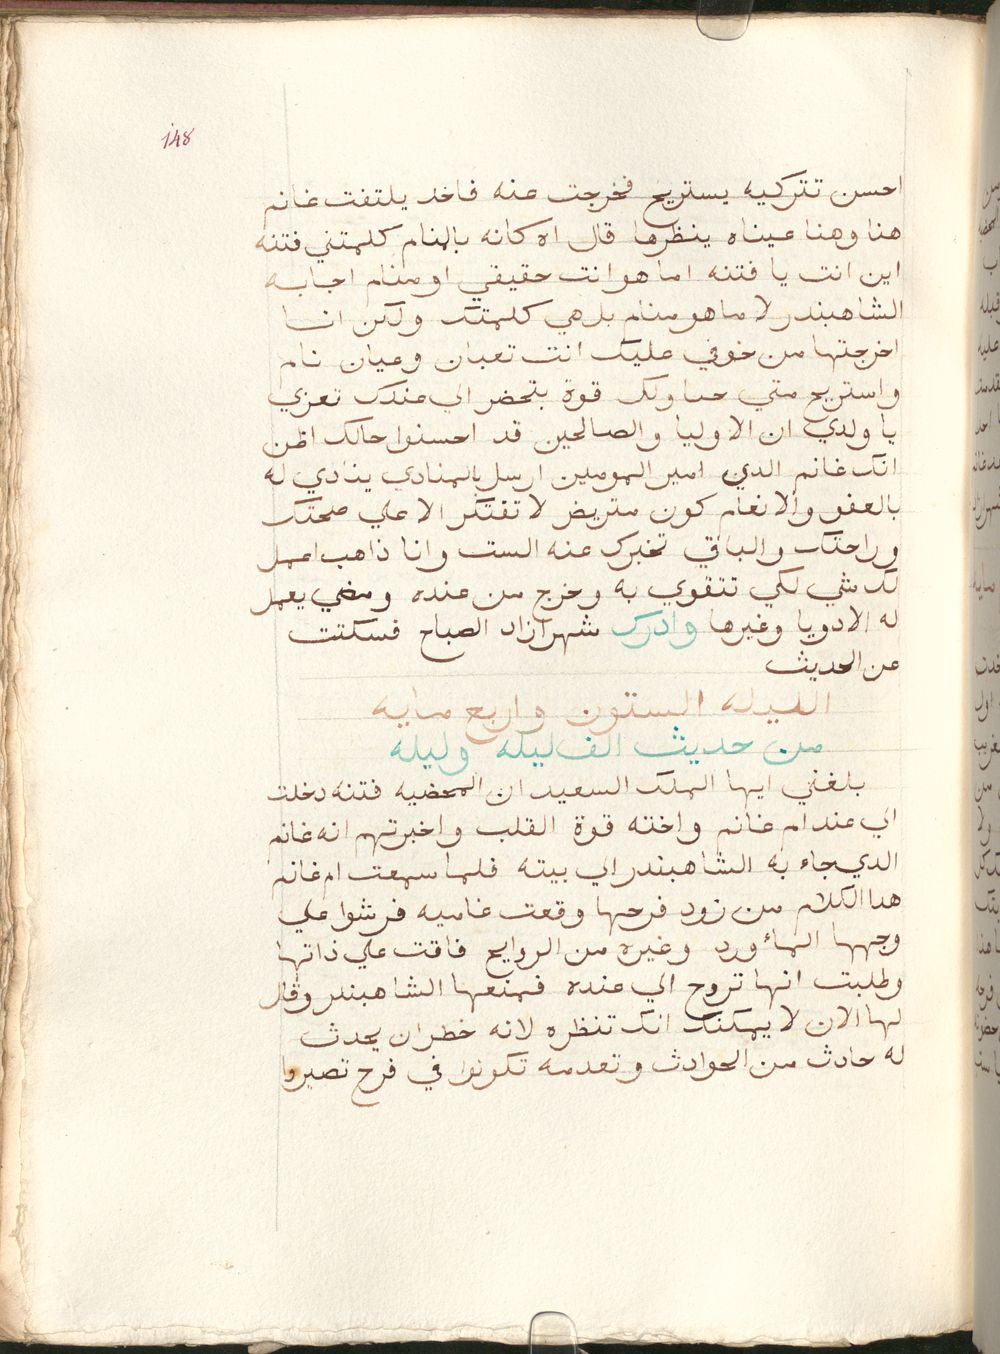 148
احسن تتركيه يستريح فخرجت عنه فاخد يلتفت غانم
هنا وهنا عيناه ينظرها قال اه كانه بالمنام كلمتني فتنه
اين انت يا فتنه اما هو انت حقيقي او منام اجابه
الشاهبندر لا ما هو منام بل هي كلمتك ولكن انا
اخرجتها من خوفي عليك انت تعبان وعيان نام
واستريح متي صار لك قوة بتحضر الي عندك تعزي
يا ولدي ان الاوليا والصالحين قد احسنوا حالك اظن
انك غانم الدي امير المومين ارسل بالمنادي ينادي له
بالعفو والانعام كون متريض لا تفتكر الا علي صحتك
وراحتك والباقي تخبرك عنه الست وانا ذاهب اعمل
لك شي لكي تتقوي به وخرج من عنده ومضي يعمل
له الادويا وغيرها وادرك شهرازاد الصباح فسكتت
عن الحديث
الليله الستون واربع مايه
من حديث الف ليله وليله
بلغني ايها الملك السعيد ان المحضيه فتنه دخلت
الي عند ام غانم واخته قوة القلب واخبرتهم انه غانم
الدي جاء به الشاهبندر الي بيته فلما سمعت ام غانم
هدا الكلام من زود فرحها وقعت غاميه فرشوا علي
وجهها الماء ورد وغيره من الروايح فاقت علي ذاتها
وطلبت انها تروح الي عنده فمنعها الشاهبندر وقال
لها الان لا يمكنك انك تنظره لانه خطر ان يحدث
له حادث من الحوادث وتعدمه تكونوا في فرح تصيروا